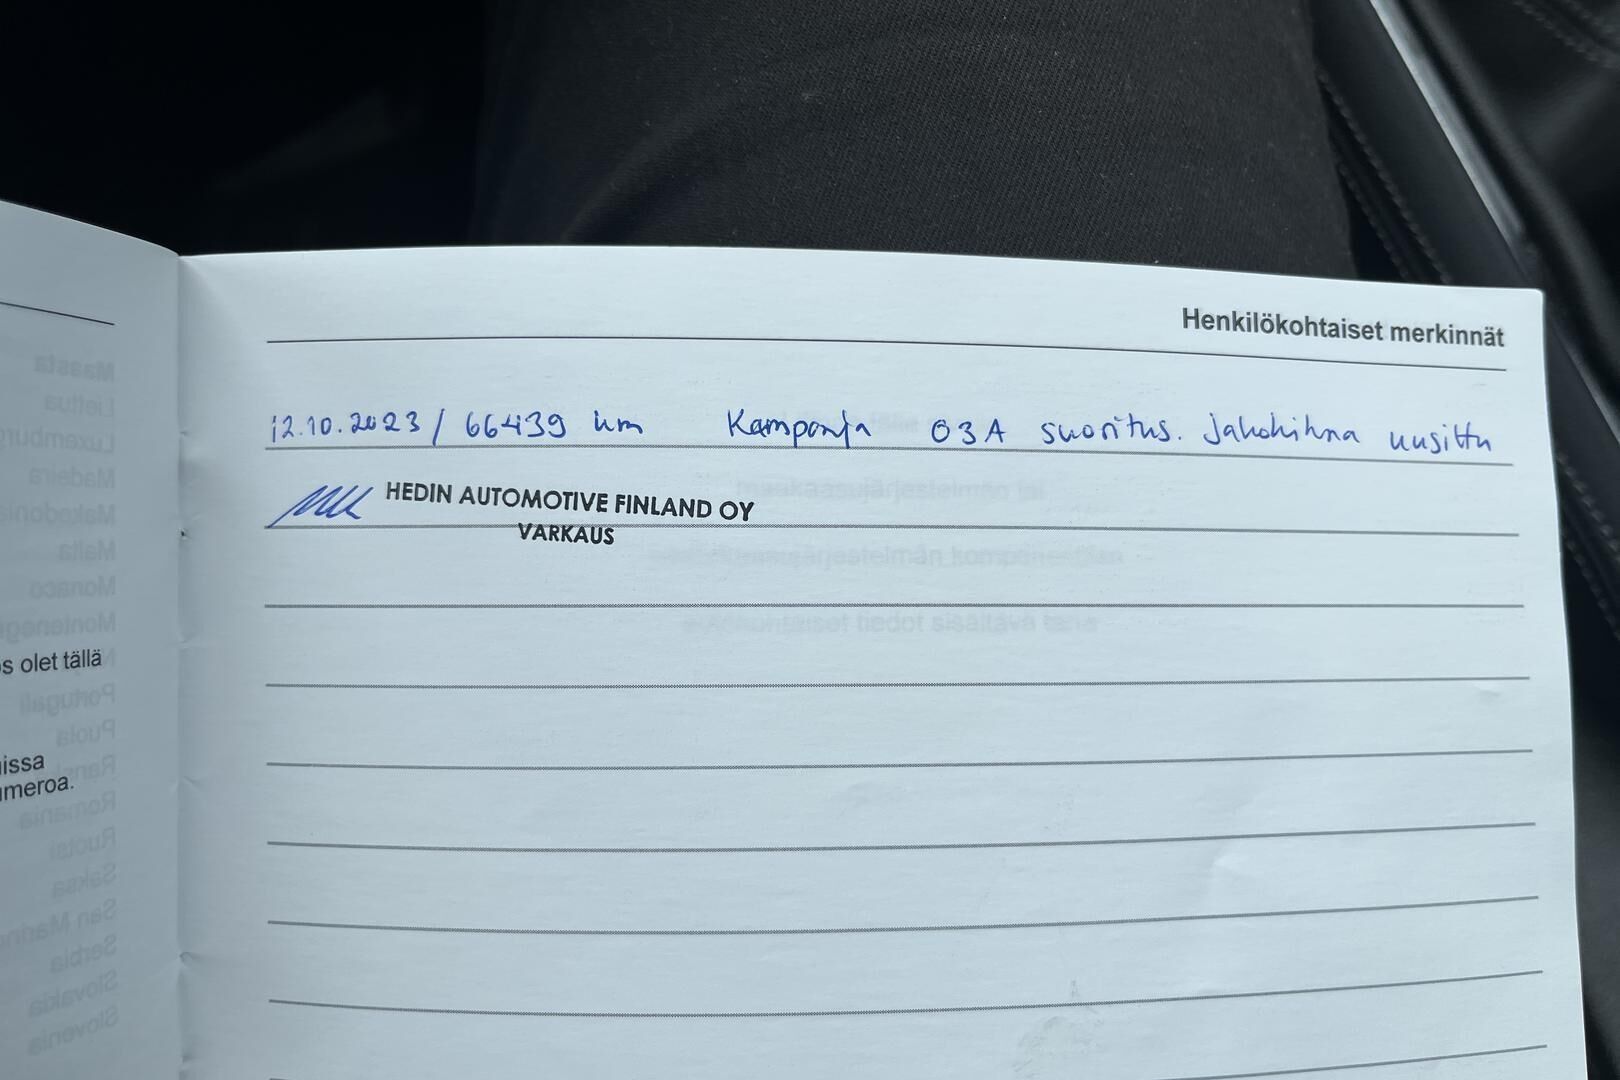 Henkilökohtaiset merkinnät
12.10.2023 / 66439 km Kampanja 03A suoritus. Jakohihna uusittu
HEDIN AUTOMOTIVE FINLAND OY
VARKAUS
s olet tällä
issa
umeroa.